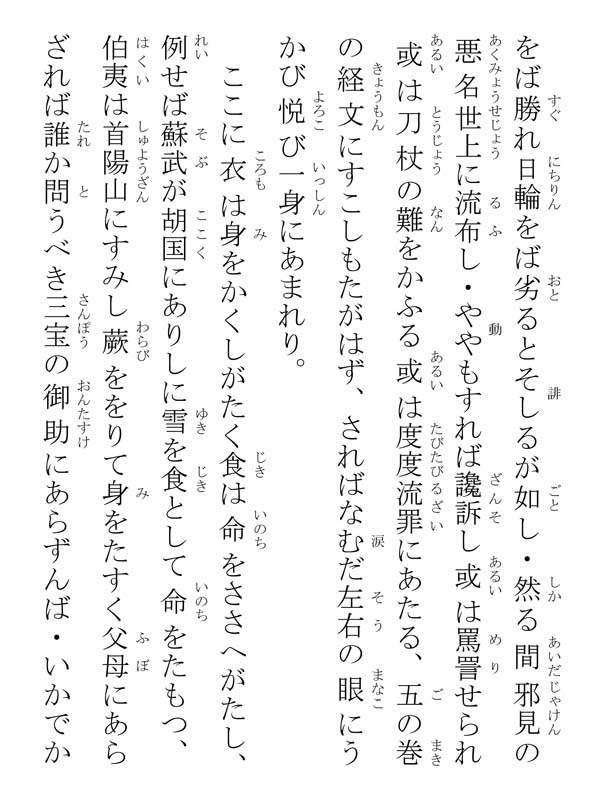 をば勝れ日輪をば劣るとそしるが如し・然る間邪見の
悪名世上に流布し・ややもすれば讒訴し或は罵詈せられ
或は刀杖の難をかふる或は度度流罪にあたる、五の巻
の経文にすこしもたがはず、さればなむだ左右の眼にう
かび悦び一身にあまれり。
ここに衣は身をかくしがたく食は命をささへがたし、
例せば蘇武が胡国にありしに雪を食として命をたもつ、
伯夷は首陽山にすみし蕨ををりて身をたすく父母にあら
ざれば誰か問うべき三宝の御助にあらずんば・いかでか